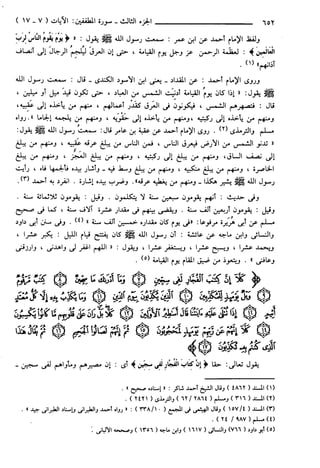 ٦٥٢ الجزء الثالث - سورة المطففين: الآيات (٧ - ١٧)
ولفظ الإمام أحمد: عن ابن عمر: سمعت رسول الله ﷺ يقول: « ﴿يَوْمَ يَقُومُ النَّاسُ لِرَبِّ
الْعَالَمِينَ﴾: لعظمة الرحمن عز وجل يوم القيامة، حتى إن العرق ليُلجم الرجال إلى أنصاف
آذانهم» (١).
وروى الإمام أحمد: عن المقداد - يعني ابن الأسود الكندي - قال: سمعت رسول الله
ﷺ يقول: « إذا كان يوم القيامة أدنيت الشمس من العباد، حتى تكون قيد ميل أو ميلين،
قال: فتصهرهم الشمس، فيكونون في العرق كقدر أعمالهم، منهم من يأخذه إلى عقبيه،
ومنهم من يأخذه إلى ركبتيه، ومنهم من يأخذه إلى حقويه، ومنهم من يلجمه إلجاما». رواه
مسلم والترمذي (٢). روى الإمام أحمد عن عقبة بن عامر قال: سمعت رسول الله ﷺ يقول:
« تدنو الشمس من الأرض فيعرق الناس، فمن الناس من يبلغ عرقه عقبيه، ومنهم من يبلغ
إلى نصف الساق، ومنهم من يبلغ إلى ركبتيه، ومنهم من يبلغ العجز، ومنهم من يبلغ
الخاصرة، ومنهم من يبلغ منكبيه، ومنهم من يبلغ وسط فيه - وأشار بيده فألجمها فاه، رأيت
رسول الله ﷺ يشير هكذا - ومنهم من يغطيه عرقه». وضرب بيده إشارة. انفرد به أحمد (٣).
وفي حديث: أنهم يقومون سبعين سنة لا يتكلمون. وقيل: يقومون ثلاثمائة سنة.
وقيل: يقومون أربعين ألف سنة. ويقضى بينهم في مقدار عشرة آلاف سنة، كما في صحيح
مسلم عن أبي هريرة مرفوعا: «في يوم كان مقداره خمسين ألف سنة» (٤). وفي سنن أبي داود
والنسائي وابن ماجه عن عائشة: أن رسول الله ﷺ كان يفتتح قيام الليل: يكبر عشرا،
ويحمد عشرا، ويسبح عشرا، ويستغفر عشرا، ويقول: « اللهم اغفر لي واهدني، وارزقني
وعافني». ويتعوذ من ضيق المقام يوم القيامة (٥).
﴿ كَلَّا إِنَّ كِتَابَ الْفُجَّارِ لَفِي سِجِّينٍ ﴿٧﴾ وَمَا أَدْرَاكَ مَا سِجِّينٌ ﴿٨﴾ كِتَابٌ مَّرْقُومٌ
﴿٩﴾ وَيْلٌ يَوْمَئِذٍ لِّلْمُكَذِّبِينَ ﴿١٠﴾ الَّذِينَ يُكَذِّبُونَ بِيَوْمِ الدِّينِ ﴿١١﴾ وَمَا يُكَذِّبُ بِهِ إِلَّا كُلُّ مُعْتَدٍ
أَثِيمٍ ﴿١٢﴾ إِذَا تُتْلَى عَلَيْهِ آيَاتُنَا قَالَ أَسَاطِيرُ الْأَوَّلِينَ ﴿١٣﴾ كَلَّا بَلْ رَانَ عَلَى قُلُوبِهِم مَّا كَانُوا يَكْسِبُونَ
﴿١٤﴾ كَلَّا إِنَّهُمْ عَن رَّبِّهِمْ يَوْمَئِذٍ لَّمَحْجُوبُونَ ﴿١٥﴾ ثُمَّ إِنَّهُمْ لَصَالُو الْجَحِيمِ ﴿١٦﴾ ثُمَّ يُقَالُ هَذَا
الَّذِي كُنتُم بِهِ تُكَذِّبُونَ ﴿١٧﴾ ﴾
يقول تعالى: حقا ﴿إِنَّ كِتَابَ الْفُجَّارِ لَفِي سِجِّينٍ﴾ أي: إن مصيرهم ومأواهم لفي سجين -
(١) المسند (٤٨٦٢) وقال الشيخ أحمد شاكر: «إسناده صحيح».
(٢) المسند (٣/٦) ومسلم (٦٢/٢٨٦٤) والترمذي (٢٤٢١).
(٣) المسند (١٥٧/٤) وقال الهيثمي في المجمع (٣٣٨/١٠): «رواه أحمد والطبراني وإسناد الطبراني جيد».
(٤) مسلم (٩٨٧/٢٤).
(٥) أبو داود (٧٦٦) والنسائي (١٦١٧) وابن ماجه (١٣٥٦) وصححه الألباني.